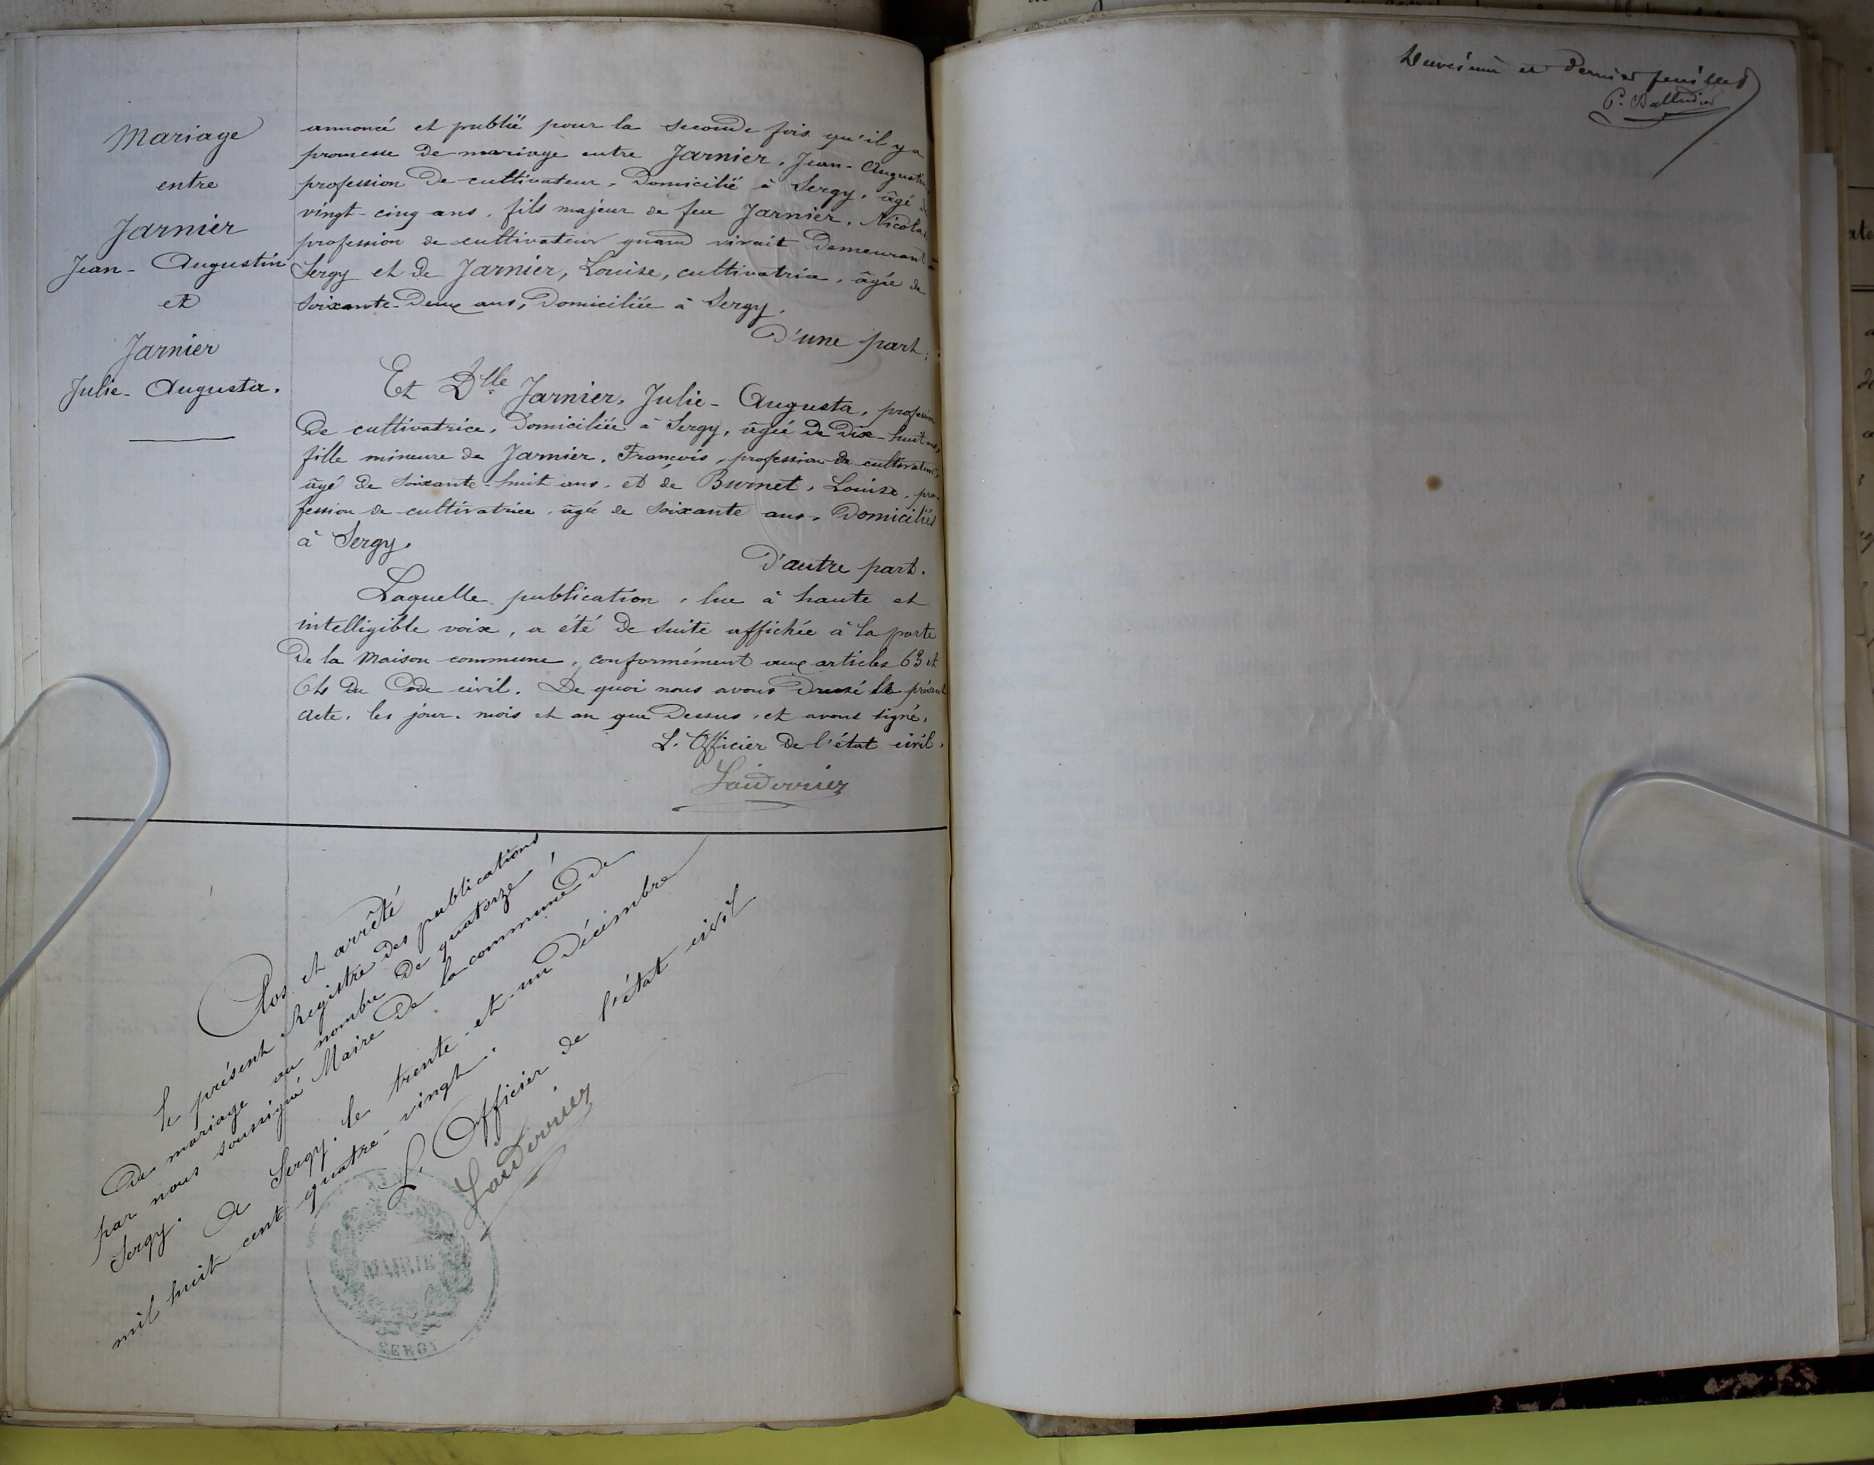 Mariage
entre
Jarnier
Jean-Augustin
et
Jarnier
Julie-Augusta.
annoncé et publié pour la seconde fois qu'il y a
promesse de mariage entre Jarnier, Jean-Augustin
profession de cultivateur, domicilié à Sergy, âgé de
vingt-cinq ans, fils majeur de feu Jarnier, Nicolas
profession de cultivateur quand vivait demeurant à
Sergy et de Jarnier, Louise, cultivatrice, âgée de
soixante-deux ans, domiciliée à Sergy.
D'une part.
Et Dlle Jarnier, Julie-Augusta, profession
de cultivatrice, domiciliée à Sergy, âgée de dix-huit ans,
fille mineure de Jarnier, François, profession de cultivateur,
âgé de soixante-huit ans, et de Burnet, Louise, pro-
fession de cultivatrice, âgée de soixante ans, domiciliés
à Sergy.
D'autre part.
Laquelle publication, lue à haute et
intelligible voix, a été de suite affichée à la porte
de la maison commune, conformément aux articles 63 et
64 du Code civil. De quoi nous avons dressé le présent
acte, les jour, mois et an que dessus, et avons signé.
L'Officier de l'état civil.
Clos et arrêté
le présent Registre des publications
de mariage au nombre de quatorze,
par nous soussigné Maire de la commune de
Sergy. A Sergy, le trente-et-un Décembre
mil huit cent quatre-vingt.
L'Officier de l'état civil
MAIRIE
SERGY
et dernier feuillet